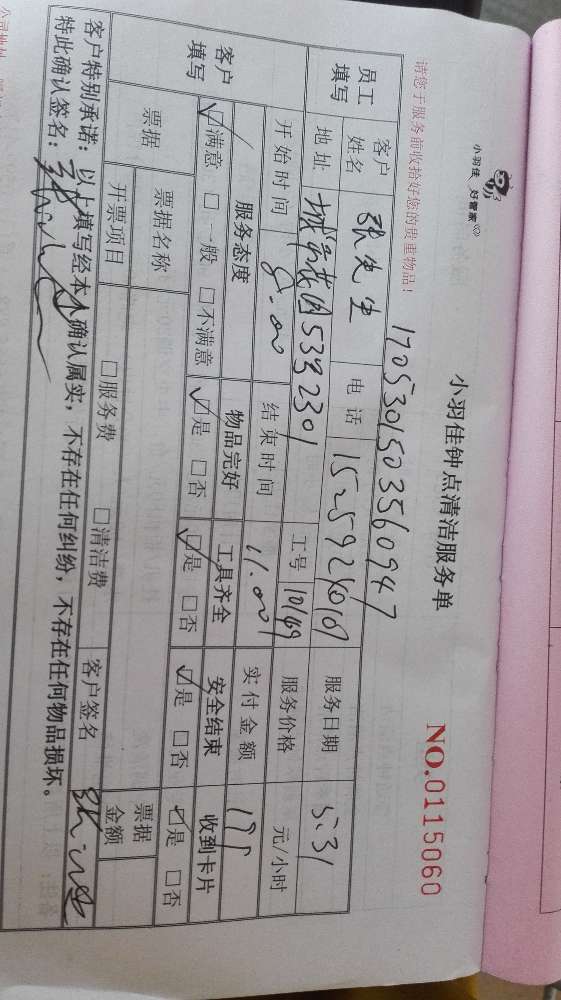 小羽佳 好管家
小羽佳钟点清洁服务单
NO.0115060
请您于服务前收拾好您的贵重物品!
1705301503560947
员工填写 客户姓名 张先生 电话 服务日期 5.31
地址: 5332301 工号 10149 服务价格 元/小时
客户填写 开始时间 8.00 结束时间 11.00 实付金额
服务态度 物品完好 工具齐全 安全结束 收到卡片
☑满意 □一般 □不满意 ☑是 □否 ☑是 □否 ☑是 □否 ☑是 □否
票据 票据名称 票据金额
开票项目 □服务费 □清洁费 客户签名
客户特别承诺:以上填写经本人确认属实,不存在任何纠纷,不存在任何物品损坏。
特此确认签名: